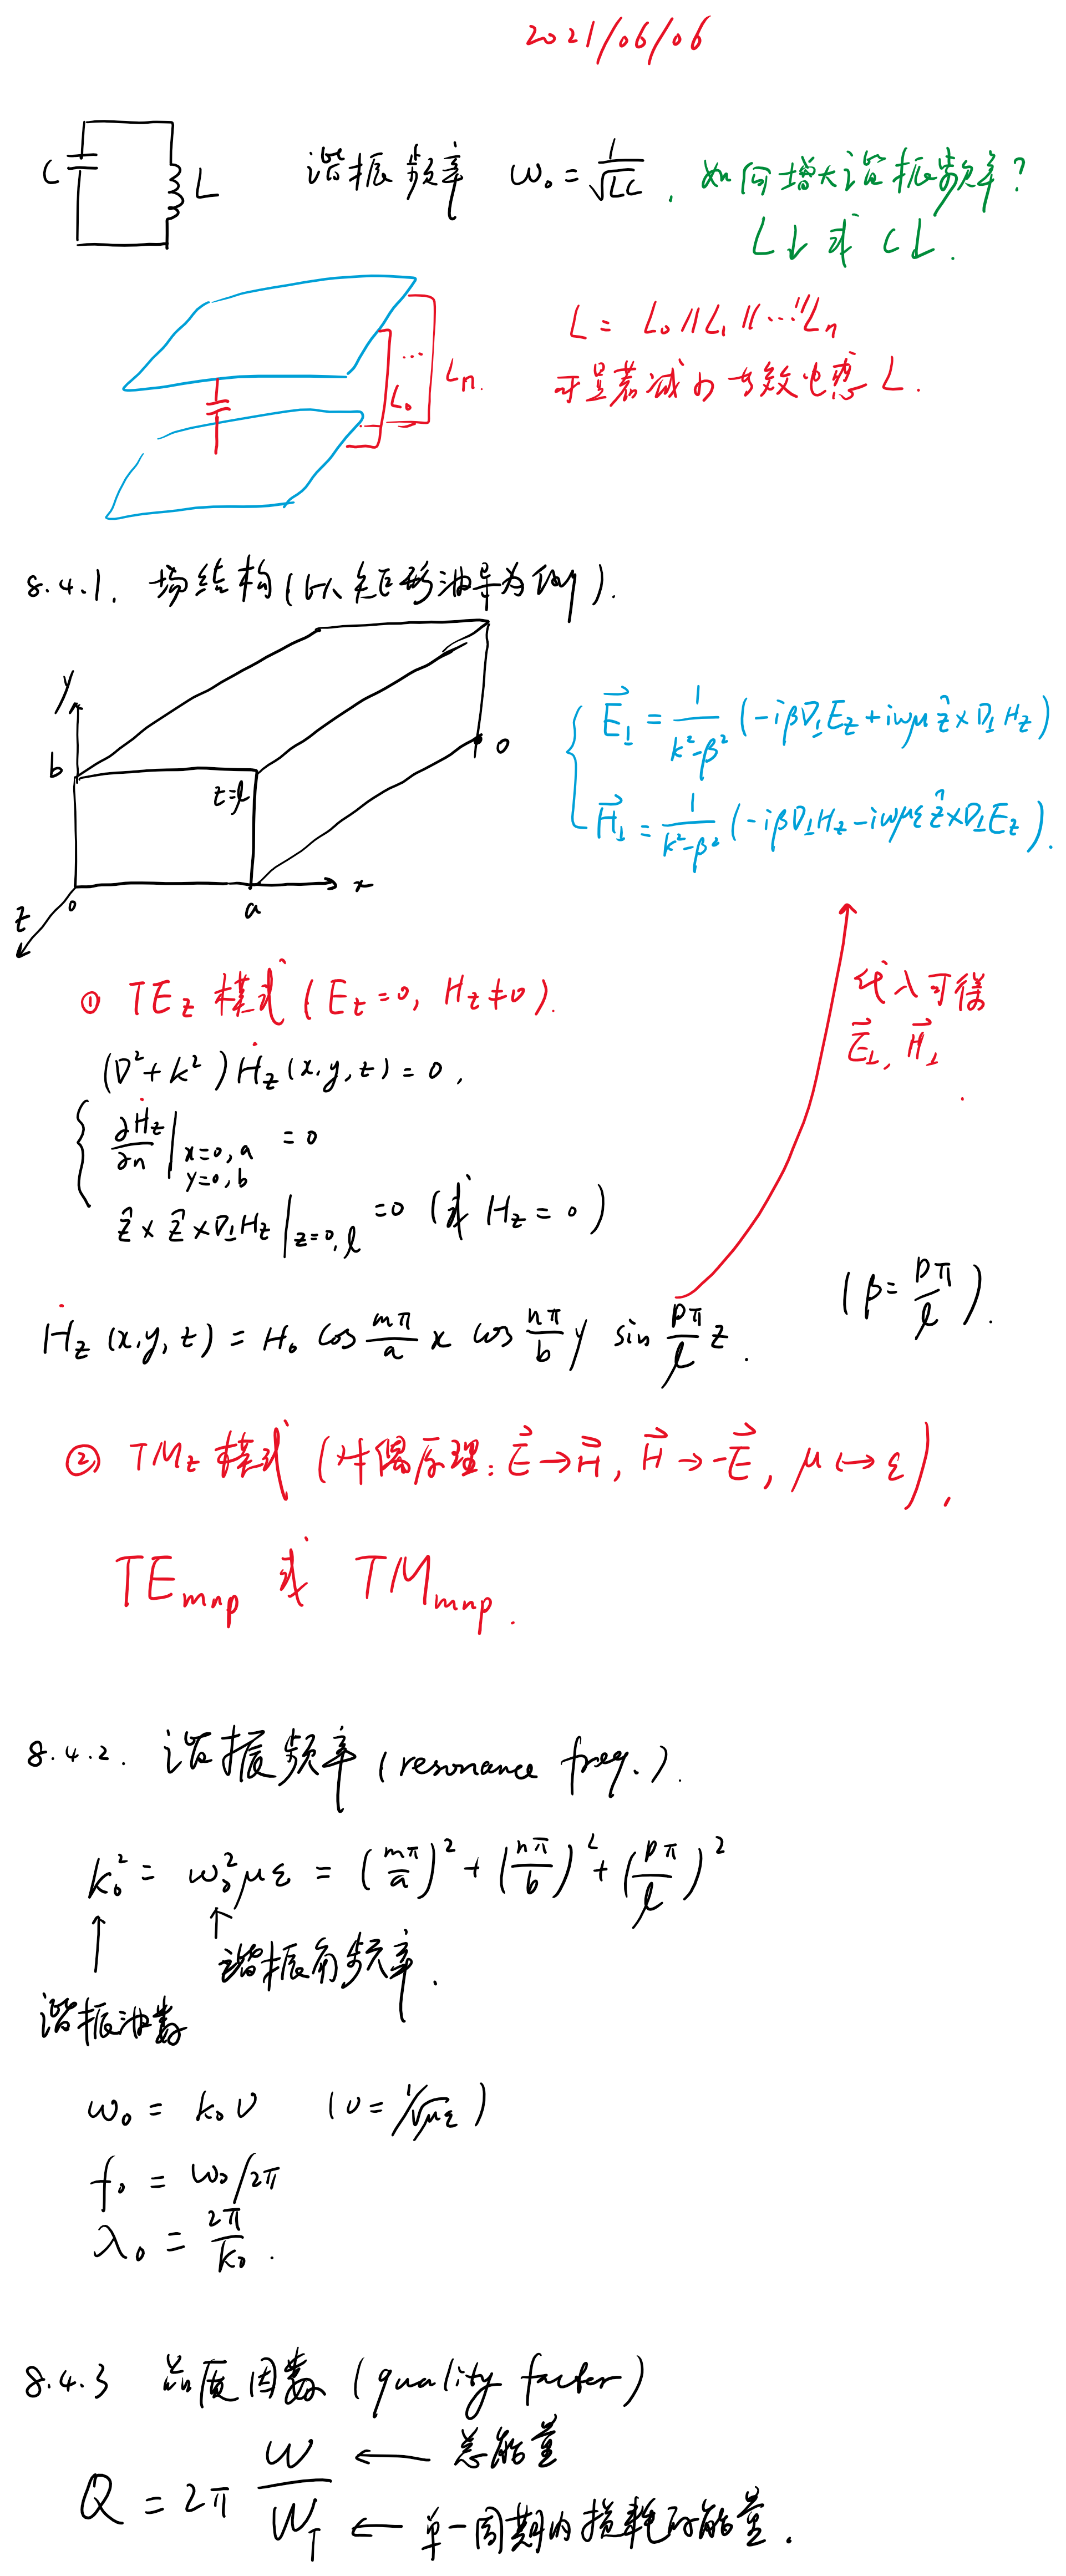 2021/06/06
C L 谐振频率 ω₀ = 1/√LC . 如何增大谐振频率?
L↓ 或 C↓.
L = L₀ // L₁ // ... // Lₙ
L₀ ... Lₙ.
可显著减少等效电感 L.
8.4.1. 场结构 (以矩形波导为例).
y
b z=l o
o a x
z
E⃗⊥ = 1/(k²-β²) (-iβ∇⊥Ez + iωμ ẑ×∇⊥Hz)
H⃗⊥ = 1/(k²-β²) (-iβ∇⊥Hz - iωμε ẑ×∇⊥Ez).
① TEz 模式 (Ez=0, Hz≠0).
代入可得
E⃗⊥, H⃗⊥.
(∇²+k²) Ḣz(x,y,z) = 0,
∂Ḣz/∂n |x=0,a y=0,b = 0
ẑ × ẑ × ∇⊥Hz |z=0,l = 0 (或 Hz = 0)
Ḣz(x,y,z) = H₀ cos mπ/a x cos nπ/b y sin pπ/l z. (β = pπ/l).
② TMz 模式 (对偶原理: E⃗→H⃗, H⃗→-E⃗, μ↔ε).
TEmnp 或 TMmnp.
8.4.2. 谐振频率 (resonance freq.).
k₀² = ω₀²με = (mπ/a)² + (nπ/b)² + (pπ/l)²
↑ ↑
谐振角频率.
谐振波数
ω₀ = k₀v (v = 1/√με)
f₀ = ω₀/2π
λ₀ = 2π/k₀.
8.4.3 品质因数 (quality factor)
Q = 2π W/W_T
W ← 总能量
W_T ← 单一周期内损耗的能量.